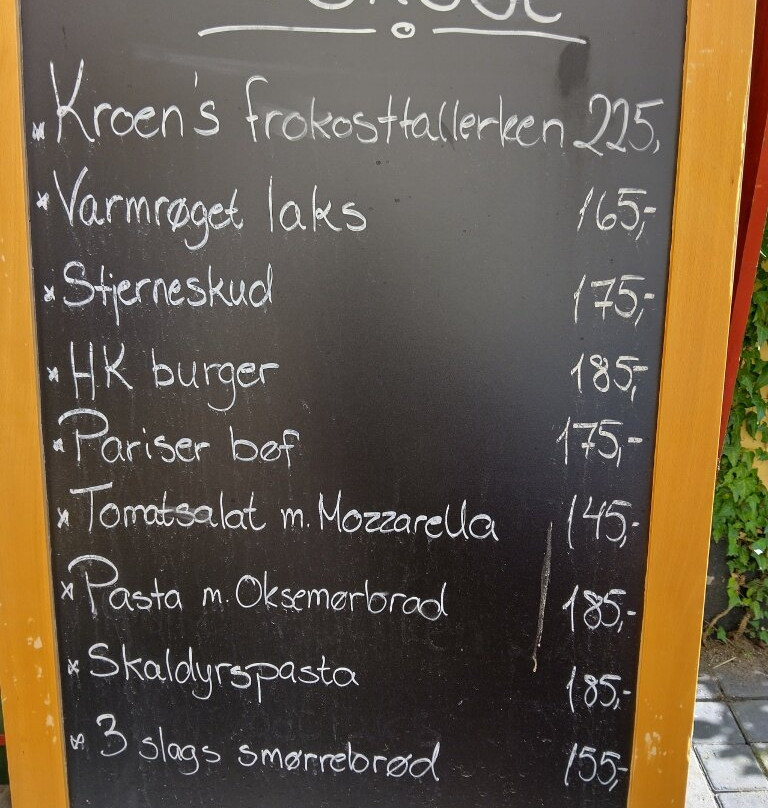 * Kroen's frokosttallerken 225,
* Varmrøget laks 165,-
* Stjerneskud 175,-
* HK burger 185,-
* Pariser bøf 175,-
* Tomatsalat m. Mozzarella 145,-
* Pasta m. Oksemørbrad 185,-
* Skaldyrspasta 185,-
* 3 slags smørrebrød 155,-